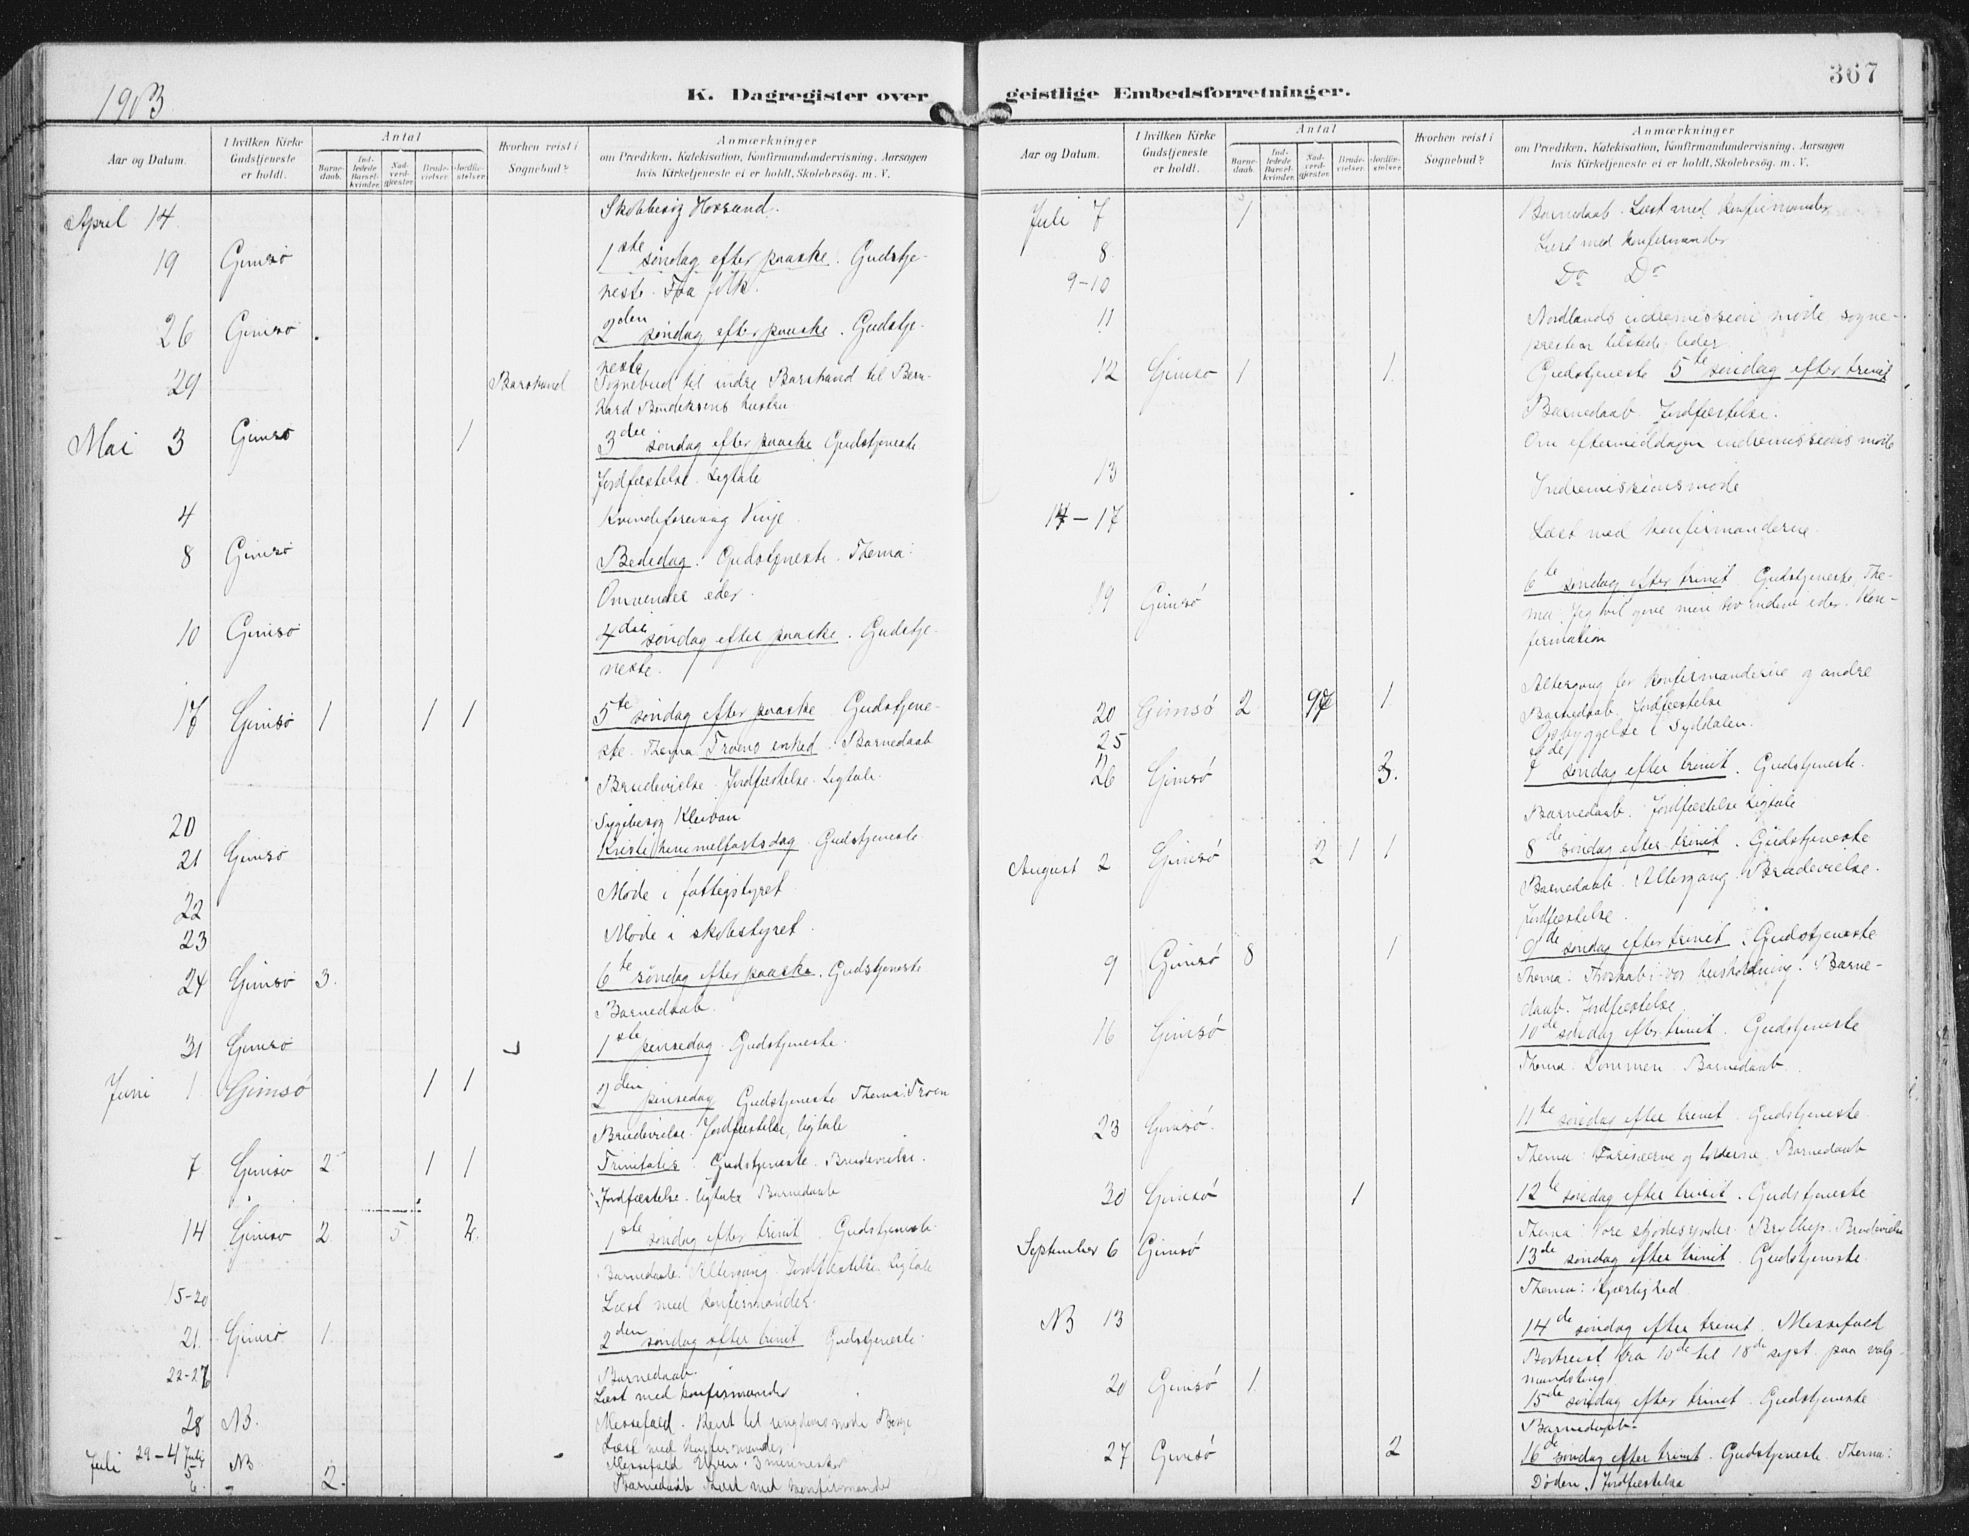 1903
K. Dagregister over
Aar og Datum.
I hvilken Kirke Gudstjeneste er holdt.
Antal
Barnedaab.
Indledede Barselkvinder.
Nadverdgjæster.
Brudevielser.
Jordfæstelser.
Hvorhen reist i Sognebud?
Anmærkninger
om Prædiken, Katekisation, Konfirmandundervisning, Aarsagen
hvis Kirketjeneste ei er holdt, Skolebesøg, m. V.
April 14. Skolebesøg Hovsund.
19 Gimsø 1ste søndag efter paaske. Gudstje-
neste. Faa folk.
26 Gimsø 2den søndag efter paaske. Gudstje-
neste
29 Barstrand Sognebud til indre Barstrand til Bern-
hard Bendiksens hustru
Mai 3 Gimsø 1 3die søndag efter paaske Gudstjeneste
Jordfæstelse. Ligtale
4 Kvindeforening Vinje.
8 Gimsø Bededag. Gudstjeneste. Thema:
Omvender eder.
10 Gimsø 4die søndag efter paaske. Gudstje-
neste.
17 Gimsø 1 1 1 5te søndag efter paaske Gudstjene-
ste. Thema Troens enhed. Barnedaab
Brudevielse. Jordfæstelse. Ligtale.
20 Sygebesøg Kleivan
21 Gimsø Kristi himmelfartsdag. Gudstjeneste.
22 Møde i fattigstyret.
23 Møde i skolestyret.
24 Gimsø 3. 6te søndag efter paaske. Gudstjeneste
Barnedaab.
31 Gimsø 1ste pinsedag. Gudstjeneste.
Juni 1 Gimsø 1 1 2den pinsedag Gudstjeneste Thema: Troen
Brudevielse. Jordfæstelse, ligtale
7 Gimsø 2 1 1 Trinitatis. Gudstjeneste. Brudevielse.
Jordfæstelse. ligtale Barnedaab
14 Gimsø 2 5 2. 1ste søndag efter trinit. Gudstjeneste.
Barnedaab. Altergang. Jordfæstelse. ligtale
15-20 Læst med konfirmander.
21. Gimsø 1. 2den søndag efter trinit Gudstjeneste.
Barnedaab.
22-27 Læst med konfirmander
28 NB. Messefald. Reist til ungdomsmøde Borge
29-4 Juli Læst med konfirmander
Juli 5 NB Messefald 3 mennesker
6. 2. Barnedaab Læst med konfirmander
367
geistlige Embedsforretninger.
Aar og Datum.
I hvilken Kirke Gudstjeneste er holdt.
Antal
Barnedaab.
Indledede Barselkvinder.
Nadverdgjæster.
Brudevielser.
Jordfæstelser.
Hvorhen reist i Sognebud?
Anmærkninger
om Prædiken, Katekisation, Konfirmandundervisning, Aarsagen
hvis Kirketjeneste ei er holdt, Skolebesøg, m. V.
Juli 7 1 Barnedaab. Læst med konfirmander
8. Læst med konfirmander
9-10 Do Do
11 Nordlands indremissions møde sogne-
presten tilstede. leder.
12 Gimsø 1 1. Gudstjeneste 5te søndag efter trinit
Barnedaab. Jordfæstelse.
Om eftermiddagen indremissions møde
13 Indremissionsmøde
14-17 Læst med konfirmanderne.
19 Gimsø 6te søndag efter trinit. Gudstjeneste, The-
ma: Jeg vil give min lov indeni eder. Kon-
firmation
20 Gimsø 2 97 1 Altergang for konfirmanderne og andre
Barnedaab. Jordfæstelse
25 Opbyggelse i Syddalen.
26 Gimsø 3. 7de søndag efter trinit. Gudstjeneste.
Barnedaab. Jordfæstelse Ligtale
August 2 Gimsø 2 1 1 8de søndag efter trinit. Gudstjeneste
Barnedaab. Altergang. Brudevielse.
Jordfæstelse.
9 Gimsø 8 1 9de søndag efter trinit. Gudstjeneste
Thema: Troskab i vor husholdning. Barne-
daab. Jordfæstelse.
16 Gimsø 10de søndag efter trinit. Gudstjeneste
Thema: Dommen. Barnedaab.
23 Gimsø. 11te søndag efter trinit. Gudstjeneste.
Thema: Farisæerne og tolderne. Barnedaab
30 Gimsø 1 12te søndag efter trinit. Gudstjeneste
Thema: Vore skjødesynder. Bryllup. Brudevielse
September 6 Gimsø 13de søndag efter trinit. Gudstjeneste
Thema: Kjærlighed
NB 13 14de søndag efter trinit. Messefald
Bortreist fra 10de til 18de sept. paa valg-
mandsting
20 Gimsø 1. 15de søndag efter trinit. Gudstjeneste
Barnedaab.
27 Gimsø 2 16de søndag efter trinit. Gudstjeneste. Thema:
Døden. Jordfæstelse